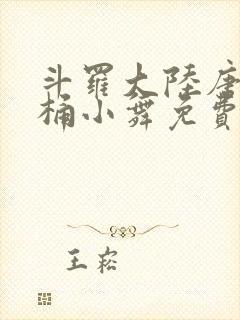 斗羅大陸唐
桶小舞免費
王崧